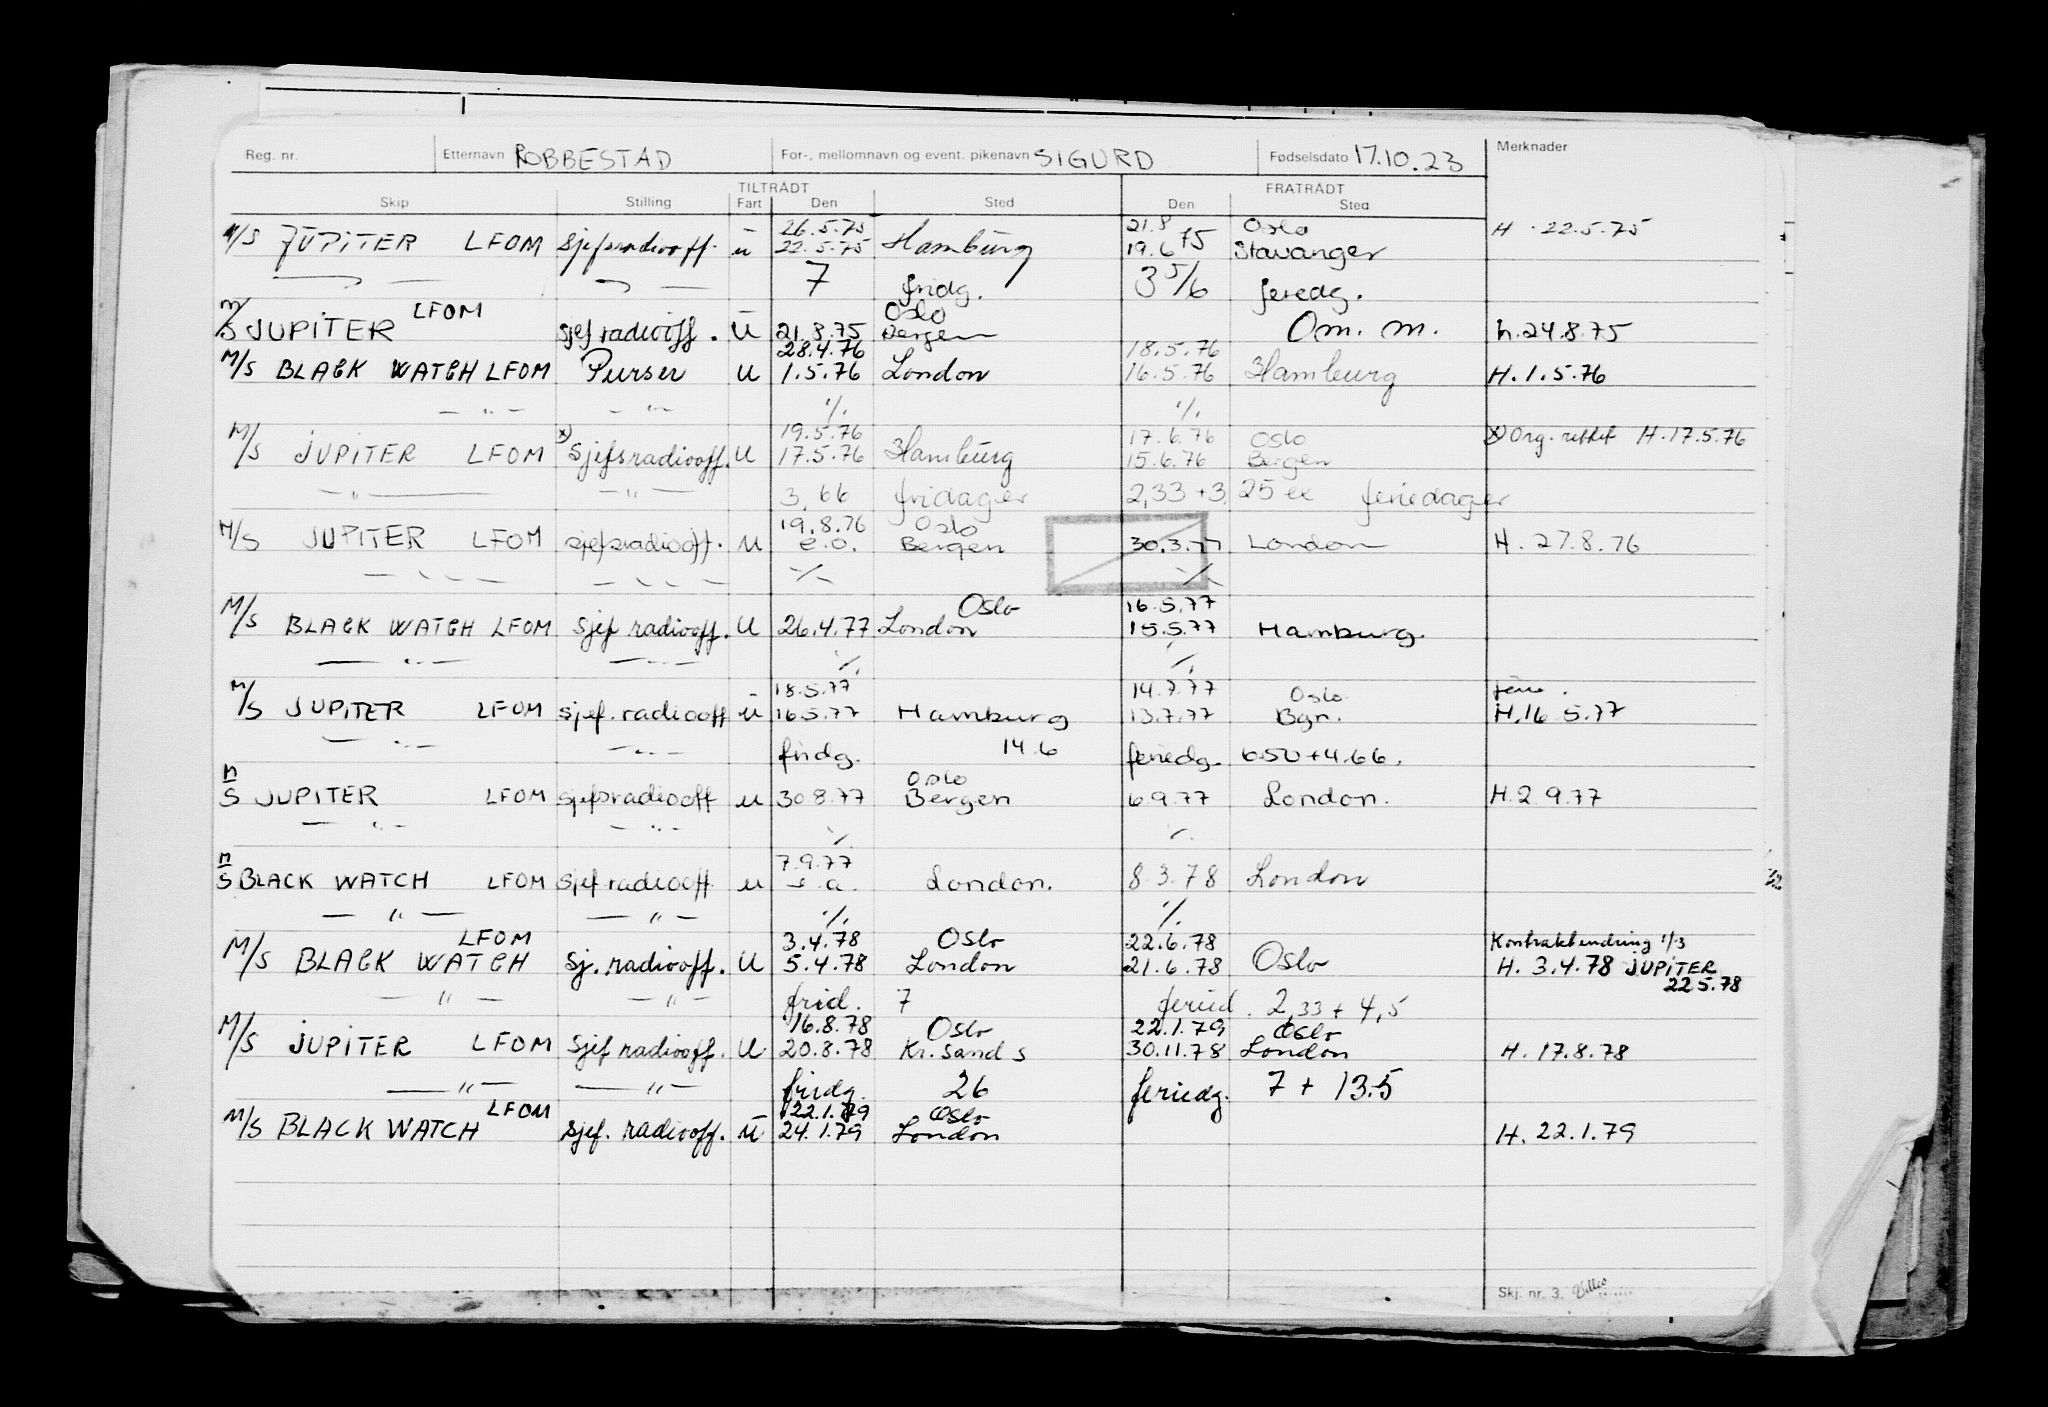 Reg. nr. Etternavn ROBBESTAD For-, mellomnavn og event. pikenavn SIGURD Fødselsdato 17.10.23 Merknader
TILTRÅDT FRATRÅDT
Skip Stilling Fart Den Sted Den Sted
26.5.75 21.8 Oslo
M/S JUPITER LFOM Sjefsradiooff. u 22.5.75 Hamburg 19.6 75 Stavanger H. 22.5.75
7 fridg. 3 5/6 feriedg.
LFOM Oslo
M/S JUPITER sjef radiooff. u 21.8.75 Bergen Om. m. h. 24.8.75
28.4.76 18.5.76
M/S BLACK WATCH LFOM Purser u 1.5.76 London 16.5.76 Hamburg H. 1.5.76
— " — — " — ./. ./.
19.5.76 17.6.76 Oslo x) Org. rettet H. 17.5.76
M/S JUPITER LFOM x) Sjefsradiooff. u 17.5.76 Hamburg 15.6.76 Bergen
— " — — " — 3,66 fridager 2,33 + 3,25 ex feriedager
19.8.76 Oslo
M/S JUPITER LFOM sjefsradiooff. u e.o. Bergen 30.3.77 London H. 27.8.76
— " — — " — ./. ./.
Oslo 16.5.77
M/S BLACK WATCH LFOM Sjef radiooff. u 26.4.77 London 15.5.77 Hamburg.
— " — — " — ./. ./.
18.5.77 14.7.77 Oslo
M/S JUPITER LFOM sjef. radiooff u 16.5.77 Hamburg 13.7.77 Bgn. H. 16.5.77
— " — — " — fridg. 14.6 feriedg. 6.50 + 4.66.
Oslo
M/S JUPITER LFOM sjefsradiooff u 30.8.77 Bergen 6.9.77 London. H. 2.9.77
— " — — " — ./. ./.
7.9.77
M/S BLACK WATCH LFOM Sjef radiooff u s.a. London. 8.3.78 London
— " — — " — ./. ./.
LFOM 3.4.78 Oslo 22.6.78 Kontraktendring 1/3
M/S BLACK WATCH Sj. radiooff. u 5.4.78 London 21.6.78 Oslo H. 3.4.78 JUPITER
22.5.78
— " — — " — frid. 7 feried. 2,33 + 4,5
16.8.78 Oslo 22.1.79 Oslo
M/S JUPITER LFOM Sjef radiooff. u 20.8.78 Kr. Sand S 30.11.78 London H. 17.8.78
— " — — " — fridg. 26 feriedg. 7 + 13.5
LFOM 22.1.79 Oslo
M/S BLACK WATCH sjef. radiooff. u 24.1.79 London H. 22.1.79
Skj. nr. 3.